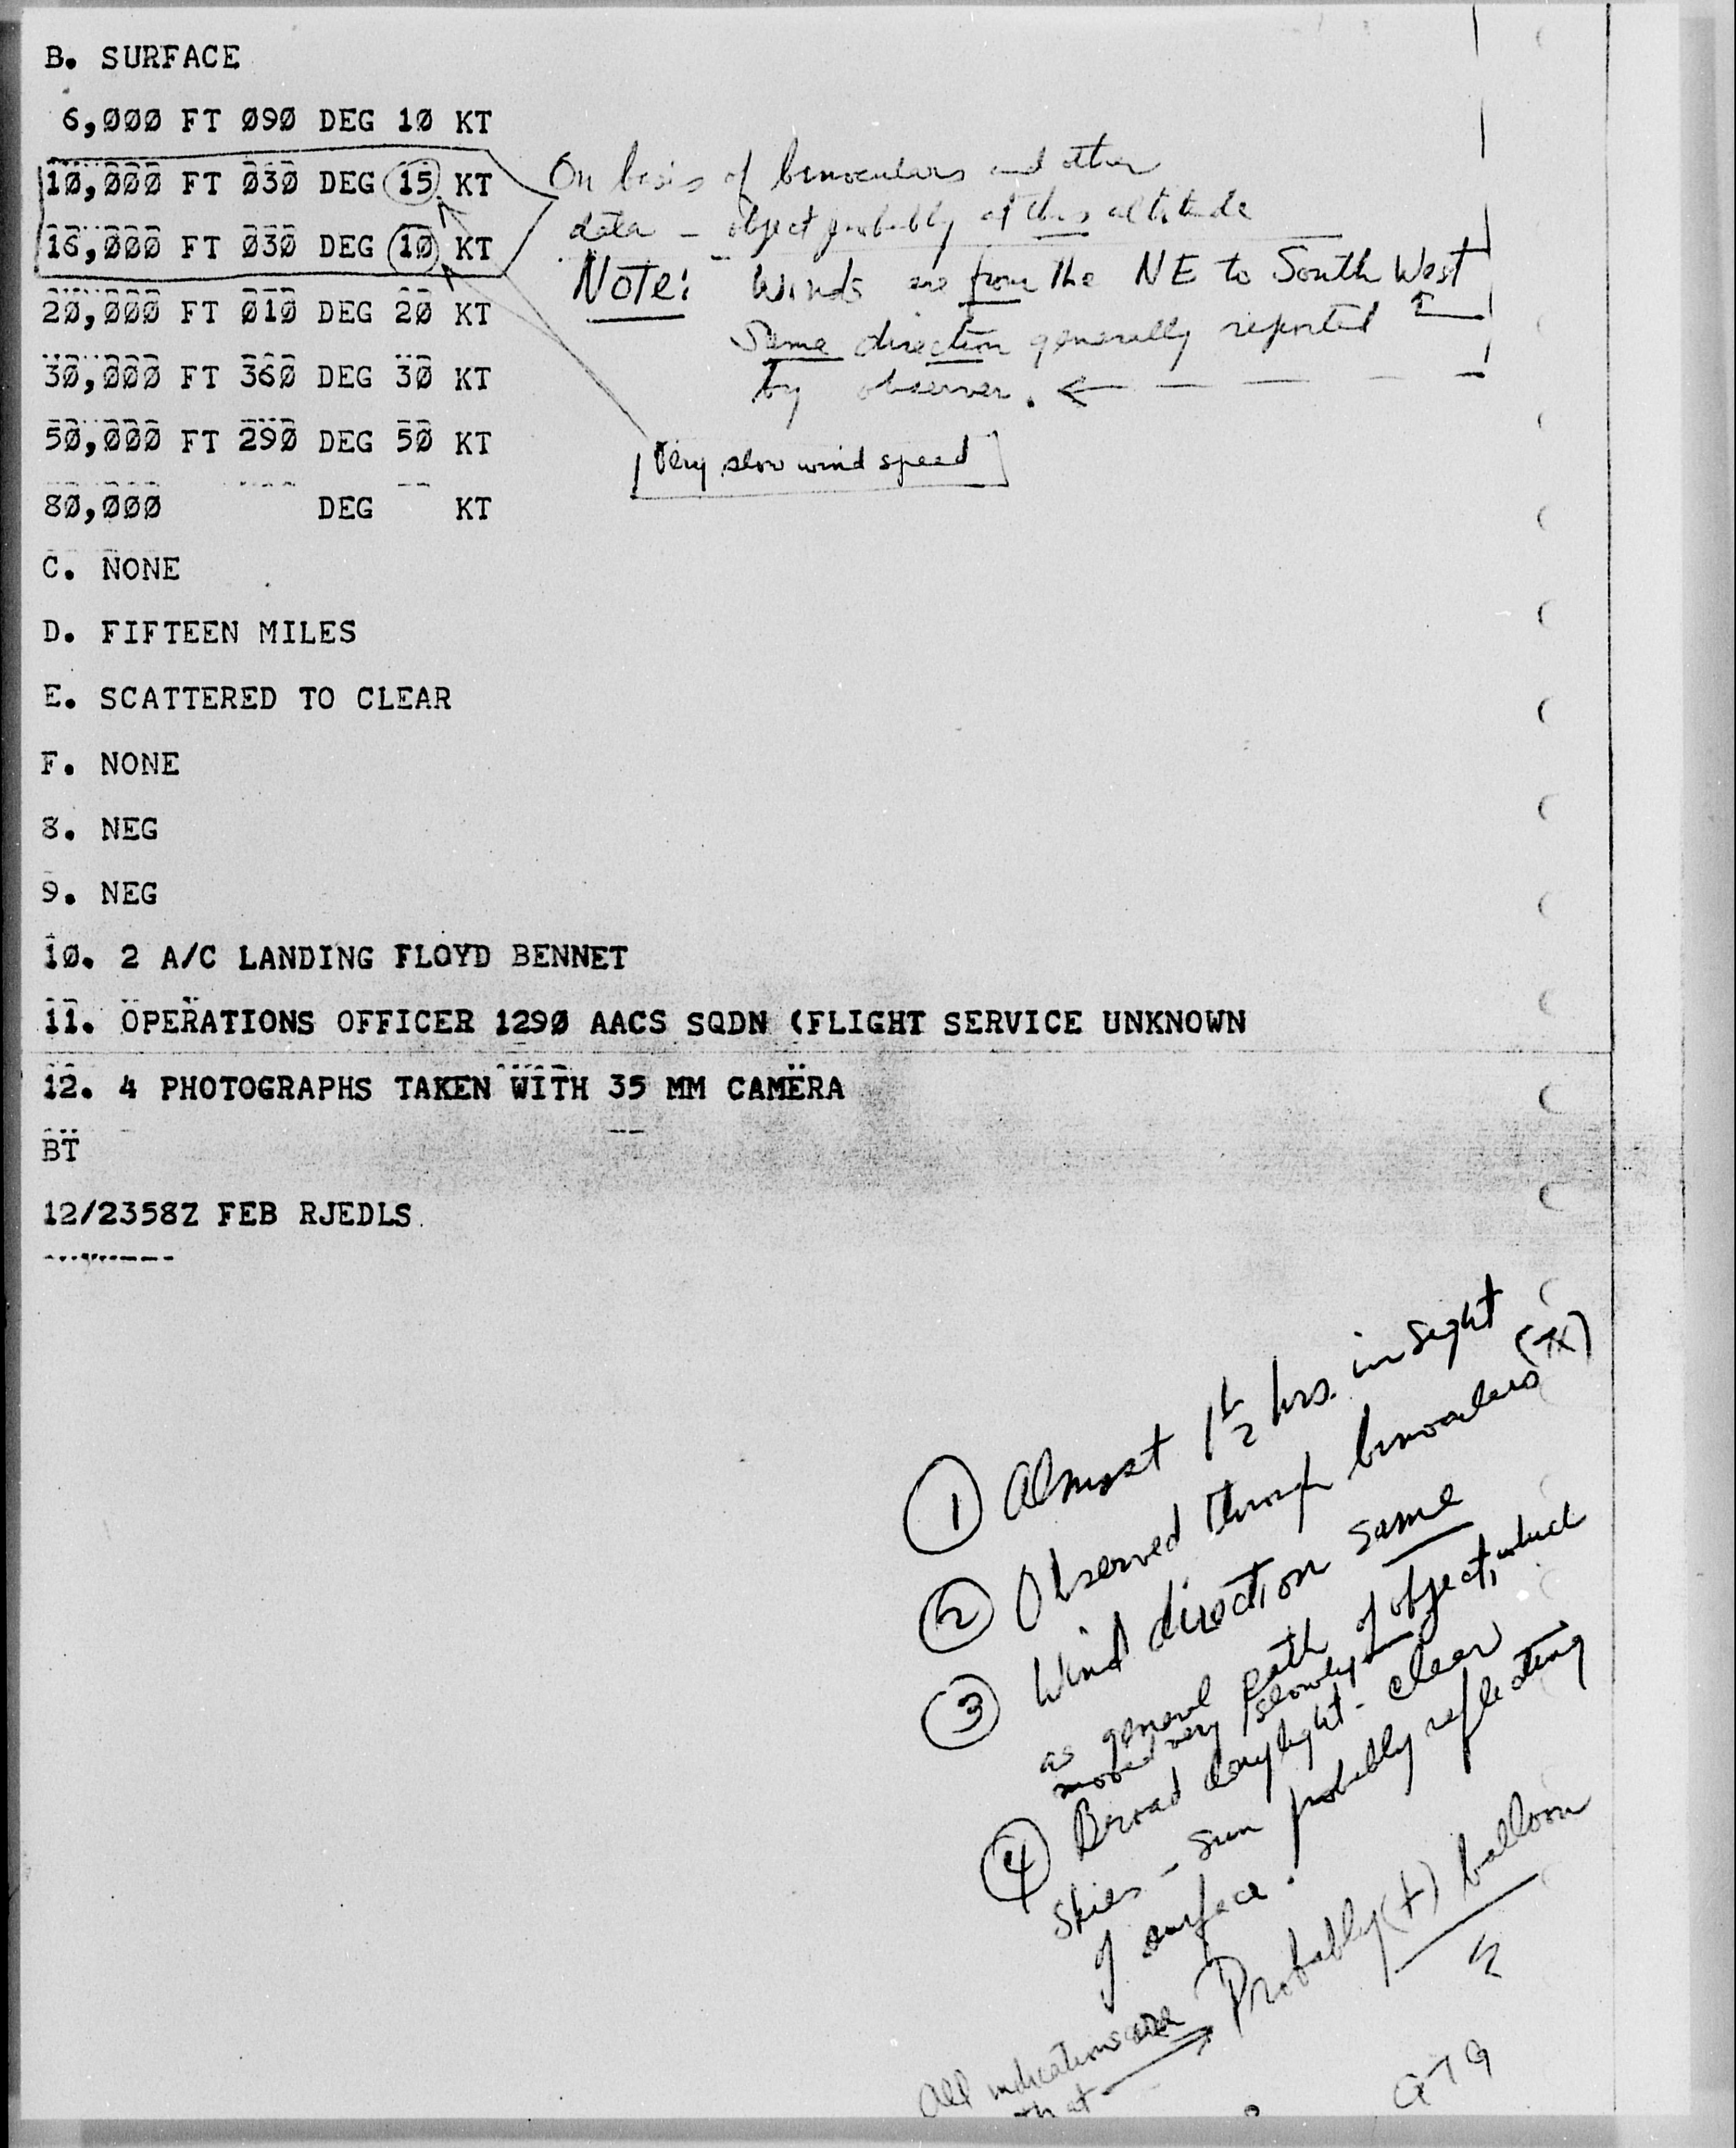 B. SURFACE
6,000 FT 090 DEG 10 KT
10,000 FT 030 DEG 15 KT
16,000 FT 030 DEG 10 KT
20,000 FT 010 DEG 20 KT
30,000 FT 360 DEG 30 KT
50,000 FT 290 DEG 50 KT
80,000 DEG KT
On basis of binoculars and other
data - object probably at this altitude
Note: Winds are from the NE to South West
Same direction generally reported
by observer.
Very slow wind speed
C. NONE
D. FIFTEEN MILES
E. SCATTERED TO CLEAR
F. NONE
8. NEG
9. NEG
10. 2 A/C LANDING FLOYD BENNET
11. OPERATIONS OFFICER 1290 AACS SQDN (FLIGHT SERVICE UNKNOWN
12. 4 PHOTOGRAPHS TAKEN WITH 35 MM CAMERA
BT
12/2358Z FEB RJEDLS
1 Almost 1 1/2 hrs. in sight
2 Observed through binoculars (7X)
3 Wind direction same
as general path of object, which
moved very slowly
4 Broad daylight - clear
skies - sun probably reflecting
of surface.
All indications are
that → Probably (+) balloon